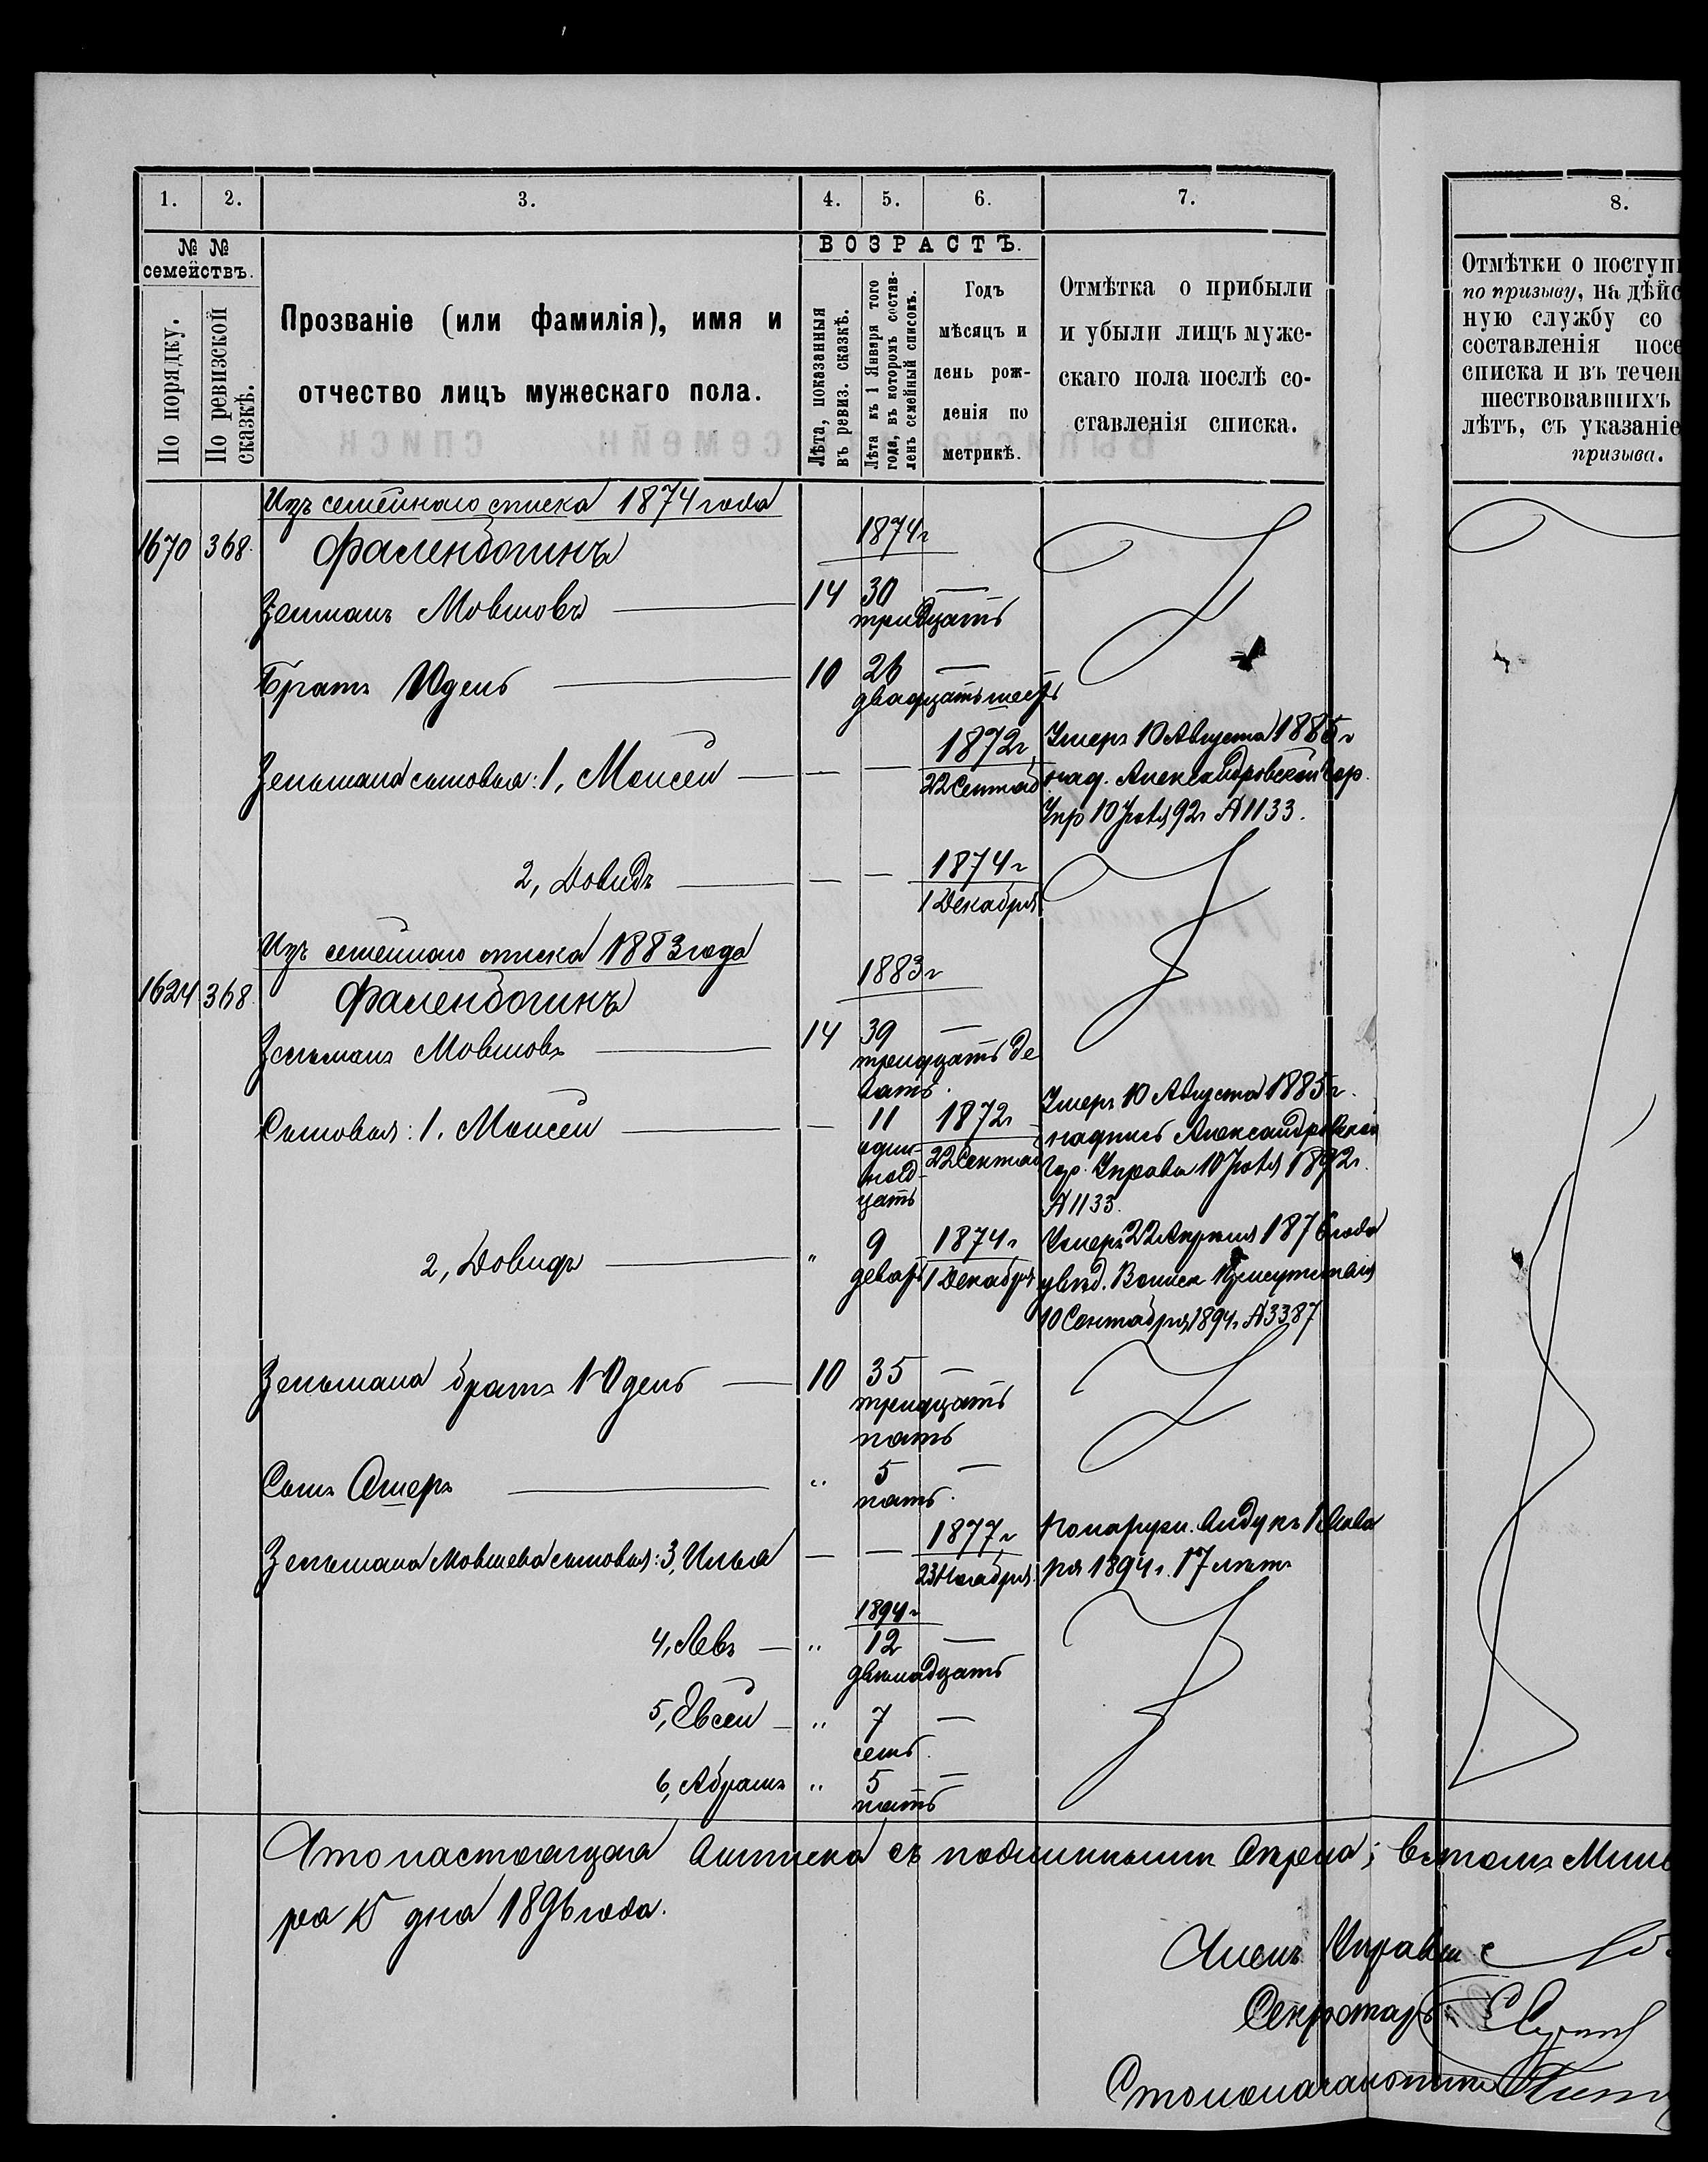 1. 2. 3. 4. 5. 6. 7. 8.
№ № семействъ.
По порядку.
По ревизской сказкѣ.
Прозваніе (или фамилія), имя и
отчество лицъ мужескаго пола.
ВОЗРАСТЪ.
Лѣта, показанныя
въ ревиз. сказкѣ.
Лѣта къ 1 Января того
года, въ которомъ состав-
ленъ семейный списокъ.
Годъ
мѣсяцъ и
день рож-
денія по
метрикѣ.
Отмѣтка о прибыли
и убыли лицъ муже-
скаго пола послѣ со-
ставленія списка.
Отмѣтки о поступ
по призыву, на дѣйс
ную службу со
составленія посе
списка и въ течен
шествовавшихъ
лѣтъ, съ указаніе
призыва.
Изъ семейнаго списка 1874 года
1670 368 Фалендогинъ 1874 г
Зельманъ Мовшовъ 14 30 —
тридцать
Братъ Юдель 10 26 —
двадцать шесть
Зельмана сыновья: 1, Моисей — — 1872 г Умеръ 10 Августа 1885 г
22 Сентяб над. Александровской Гор.
Упр 10 Іюля 92 г № 1133.
2, Довидъ — — 1874 г
1 Декабря
Изъ семейнаго списка 1883 года
1624 368 Фалендогинъ 1883 г
Зельманъ Мовшовъ 14 39 —
тридцать де
вять.
Сыновья: 1. Моисей — 11 1872 г Умеръ 10 Августа 1885 г.
один-
над-
цать
22 Сентяб надпись Александровской
Гор. Управы 10 Іюля 1892 г.
№ 1133.
2, Довидъ " 9 1874 г Умеръ 22 Апрѣля 1876 года
девять 1 Декабря увѣд. Воинск Присутствія
10 Сентября 1894 г № 3387
Зельмана братъ Юдель 10 35 —
тридцать
пять
Сынъ Ошеръ " 5 —
пять.
Зельмана Мовшева сыновья: 3, Илья — — 1877 г
23 Ноября
ря 1894 г. 17 лѣтъ
1894 г
4, Левъ " 12 —
двѣнадцать
5, Евсей " 7 —
семь.
6, Абрамъ " 5 —
пять
Что настоящая выписка съ подлиннымъ вѣрна; въ томъ
ря 15 дня 1896 года.
Членъ Управы
Секретарь
Столоначальникъ